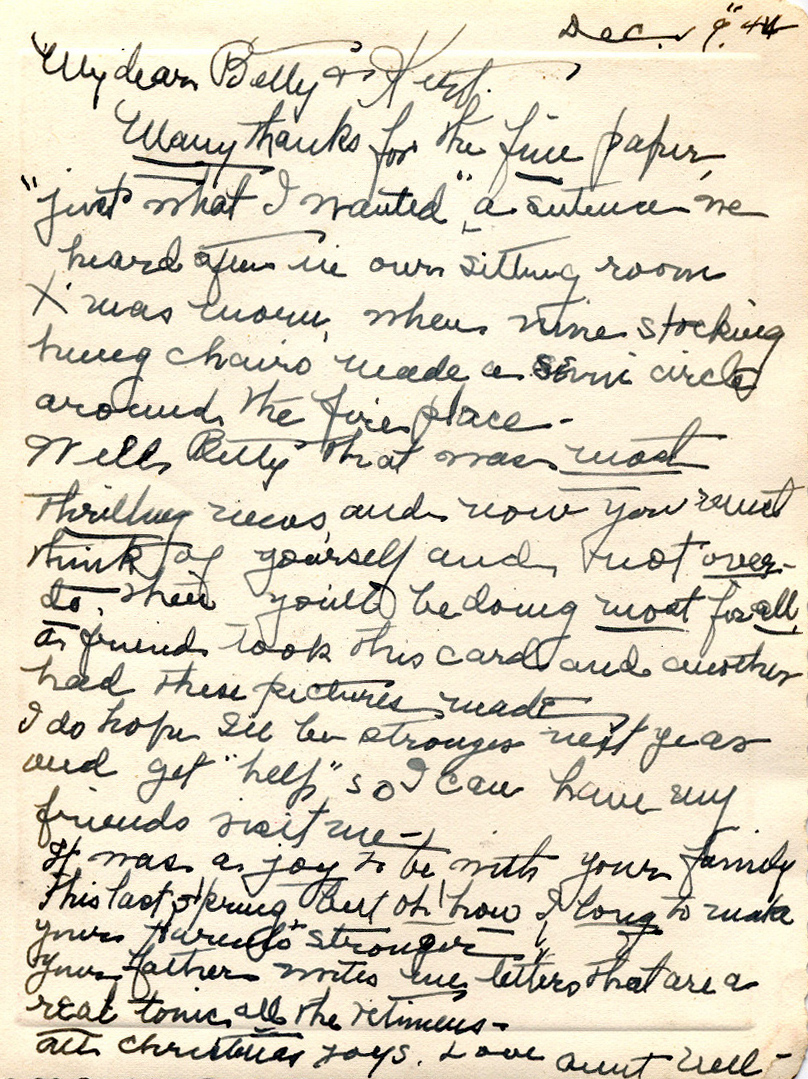 Dec. 9. 44
My dear Betty & Kurt.
Many thanks for the fine paper,
"just what I wanted", a sentence we
heard often in our sitting room
X'mas morn, when nine stocking
hung chairs made a semi circle
around the fire place -
Well, Betty that was most
thrilling news, and now you must
think of yourself and not over-
do, then you'll be doing most for all,
a friend took this card and another
had these pictures made
I do hope I'll be stronger next year
and get "help" so I can have my
friends visit me -
It was a joy to be with your family
this last spring but oh! how I long to make
your parents "stronger"!
your father writes me letters that are a
real tonic, all the
all Christmas joys. Love aunt Nell -